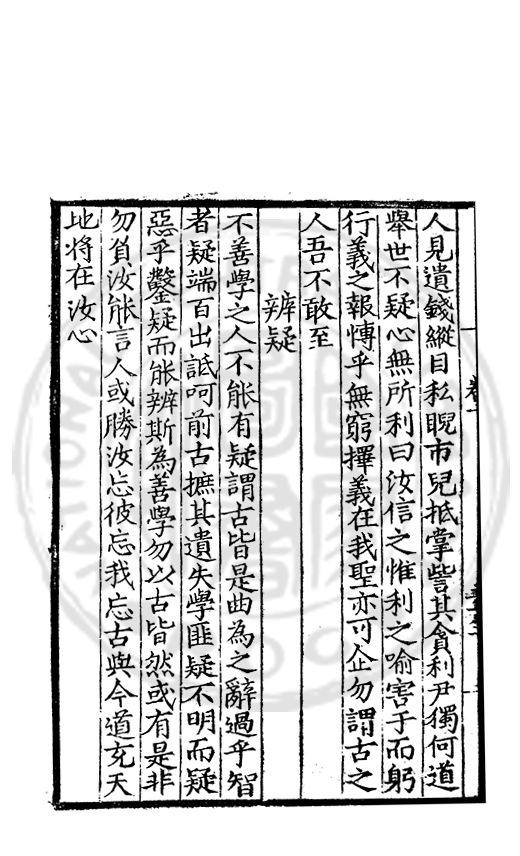 人見遺錢縱目私睨市兒抵掌訾其貪利尹獨何道
舉世不疑心無所利曰汝信之惟利之喻害于而躬
行義之報愽乎無窮擇義在我聖亦可企勿謂古之
人吾不敢至
辨疑
不善學之人不能有疑謂古皆是曲為之辭過乎智
者疑端百出詆呵前古摭其遺失學匪疑不明而疑
惡乎鑿疑而能辨斯為善學勿以古皆然或有是非
勿負汝能言人或勝汝忘彼忘我忘古與今道充天
地將在汝心